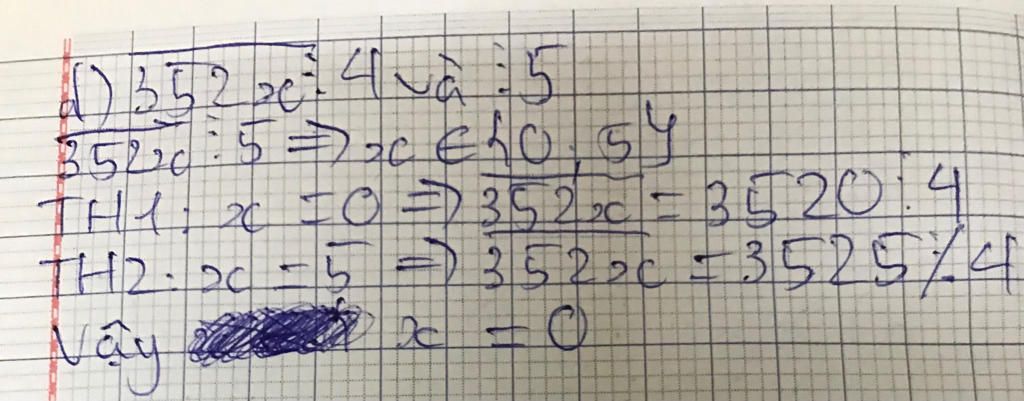 d) $\overline{352x} \vdots 4$ và $\vdots 5$
$\overline{352x} \vdots 5 \Rightarrow x \in \{0; 5\}$
TH1: $x = 0 \Rightarrow \overline{352x} = 3520 \vdots 4$
TH2: $x = 5 \Rightarrow \overline{352x} = 3525 \not\vdots 4$
Vậy $x = 0$